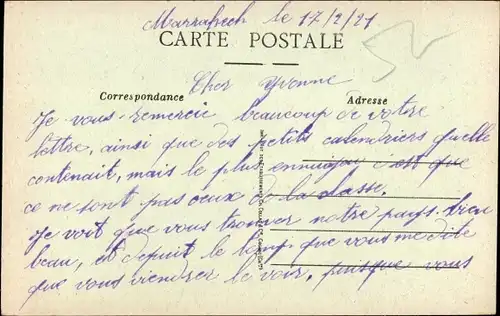 Marrakech le 17/2/21
CARTE POSTALE
Cher Yvonne
Correspondance
Adresse
Je vous remercie beaucoup de votre
lettre, ainsi que des petits calendriers quelle
contenait, mais le plus ennuyeu c'est que
ce ne sont pas ceux de la classe.
Je voit que vous trouver notre pays bien
beau, et depuit le temp que vous me dite
que vous viendrer le voir, puisque vous